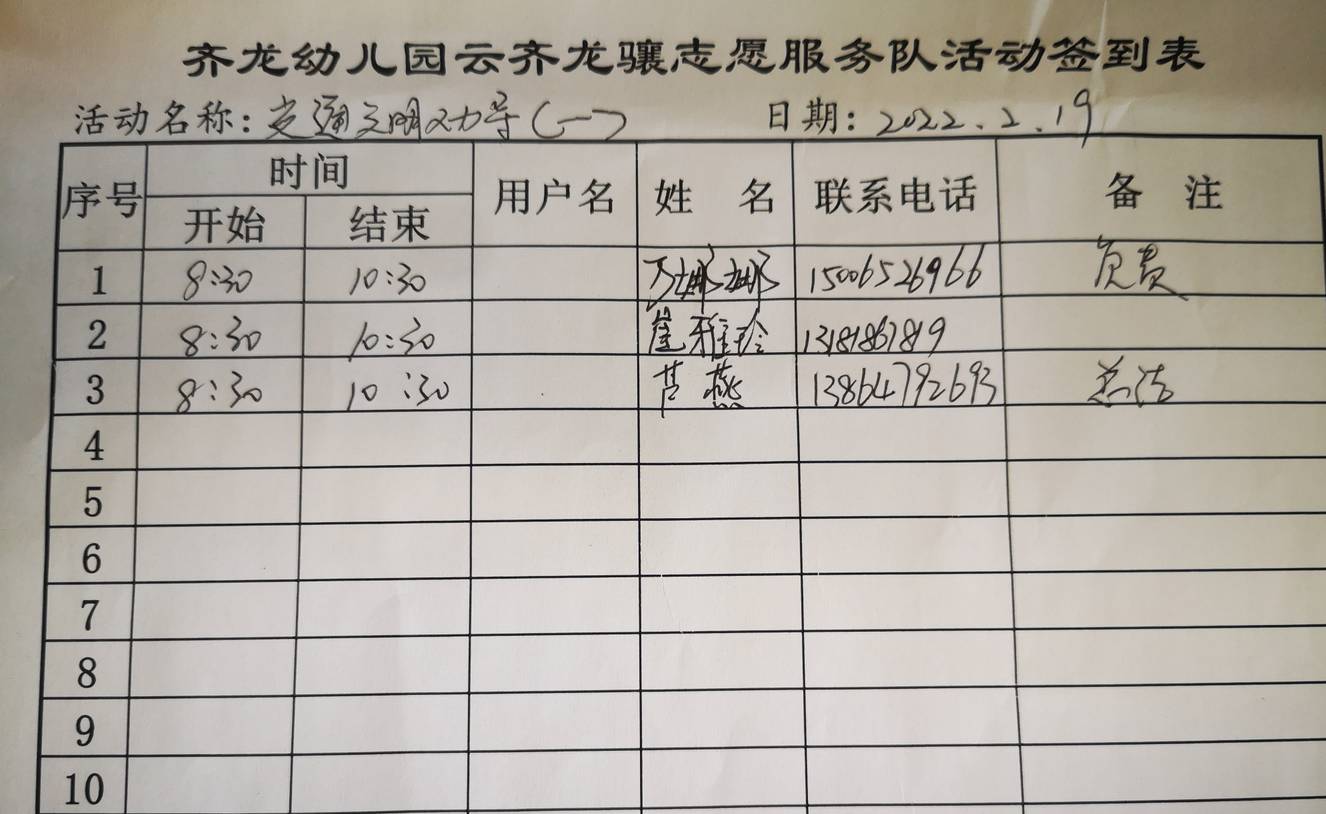 齐龙幼儿园云齐龙骧志愿服务队活动签到表
活动名称：交通文明劝导（一） 日期：2022.2.19
序号 时间 用户名 姓 名 联系电话 备 注
开始 结束
1 8:30 10:30 万娜娜 15006526966
2 8:30 10:30 崔雅玲 13181867819
3 8:30 10:30 燕 13864792693
4
5
6
7
8
9
10